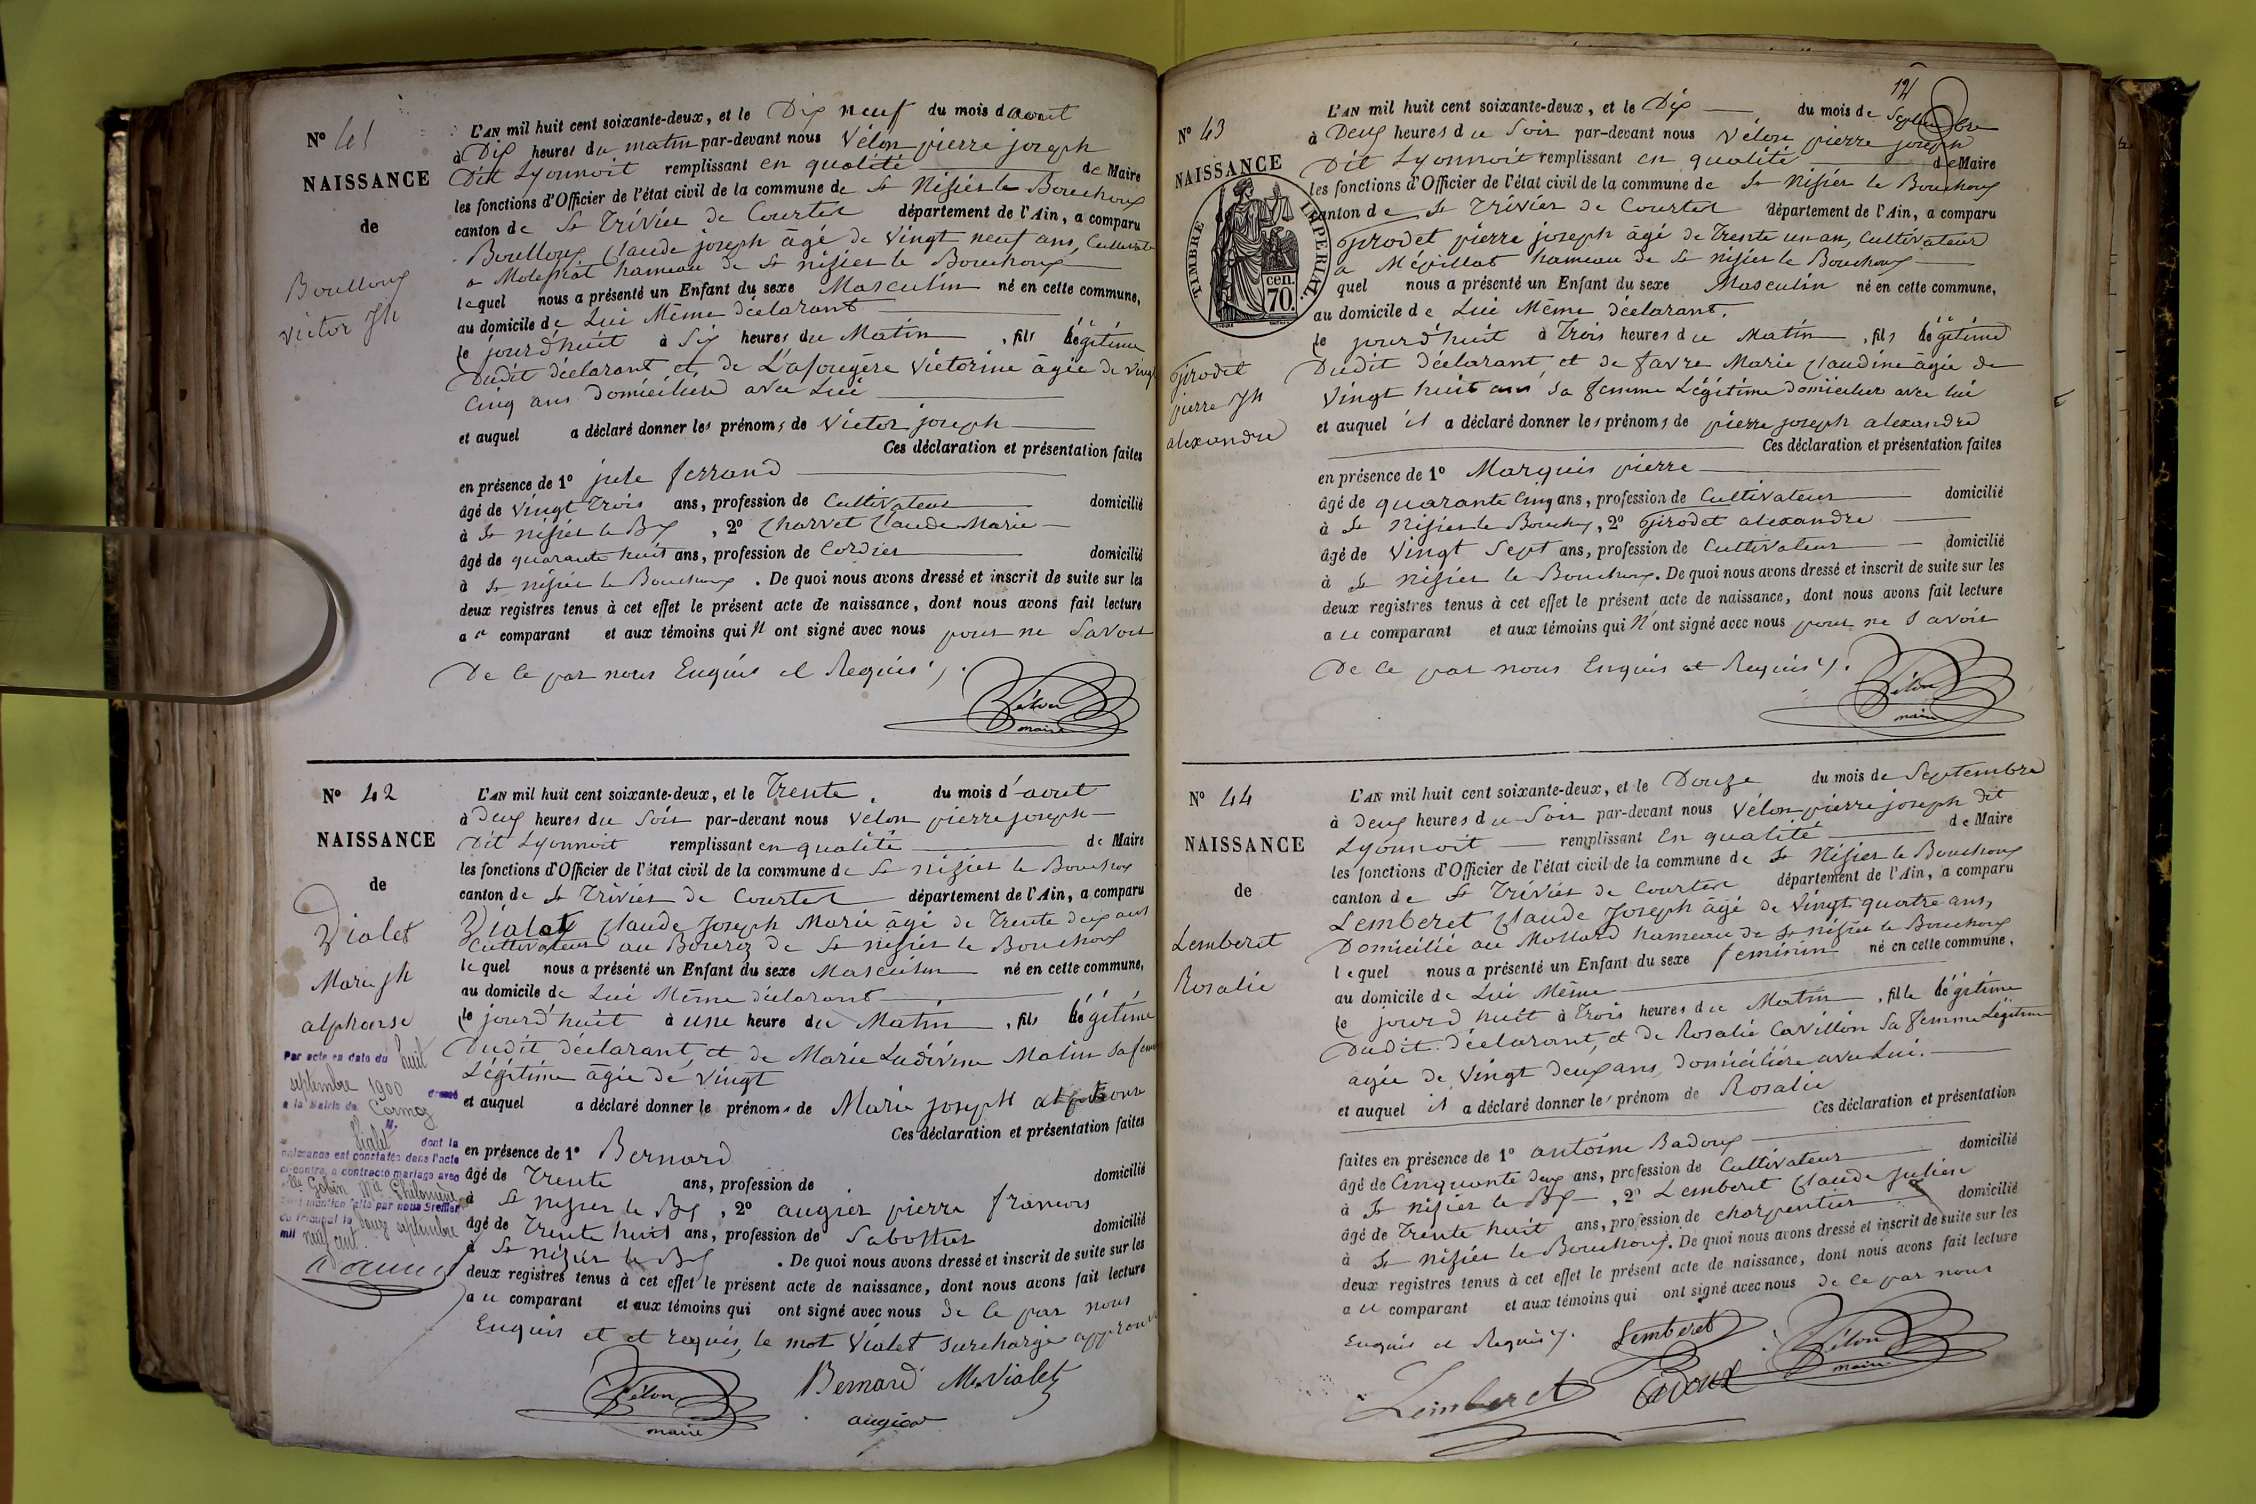 N° 41
NAISSANCE
de
Boulloux
Victor Jh
L'AN mil huit cent soixante-deux, et le Dix neuf du mois d'aout
à Dix heures du matin par-devant nous Vélon pierre joseph
Dit Lyonnoit remplissant en qualité de Maire
les fonctions d'Officier de l'état civil de la commune de St Nisier le Bouchoux
canton de St Trivier de Courtes département de l'Ain, a comparu
Boulloux Claude joseph âgé de vingt neuf ans, Cultivat
a hameau de St nisier le Bouchoux
lequel nous a présenté un Enfant du sexe Masculin né en cette commune,
au domicile de Lui Même déclarant
le jourd'huit à Six heures du Matin, fils légitime
Dudit déclarant et de Lafougère Victorine âgée de vingt
Cinq ans domiciliere avec Lui
et auquel a déclaré donner les prénoms de Victor joseph
Ces déclaration et présentation faites
en présence de 1° jule ferrand
âgé de vingt trois ans, profession de Cultivateur domicilié
à St nisier le Bx, 2° Charvet Claude Marie
âgé de quarante huit ans, profession de Cordier domicilié
à St nisier le Bouchoux. De quoi nous avons dressé et inscrit de suite sur les
deux registres tenus à cet effet le présent acte de naissance, dont nous avons fait lecture
au comparant et aux témoins qui N ont signé avec nous pour ne Savoir
De Ce par nous Enquis et Requis.
Vélon
maire
N° 42
NAISSANCE
de
Vialet
Marie jh
alphonse
Par acte en date du huit
septembre 1900 dressé
à la Mairie de Cormoz
M.
Vialet dont la
naissance est constatée dans l'acte
ci-contre, a contracté mariage avec
Mlle Gobin Mie Philomène
dont mention faite par nous Greffier
du Tribunal le douze septembre
mil neuf cent.
L'AN mil huit cent soixante-deux, et le Trente du mois d'aout
à Deux heures du Soir par-devant nous Vélon pierre joseph
Dit Lyonnoit remplissant en qualité de Maire
les fonctions d'Officier de l'état civil de la commune de St nisier le Bouchoux
canton de St Trivier de Courtes département de l'Ain, a comparu
Vialet Claude Joseph Marie âgé de Trente deux ans
Cultivateur au Bourg de St nisier le Bouchoux
lequel nous a présenté un Enfant du sexe Masculin né en cette commune,
au domicile de Lui Même déclarant
le jourd'huit à une heure du Matin, fils légitime
Dudit déclarant, et de Marie Ludivine Matin Sa femme
Légitime âgée de vingt
et auquel a déclaré donner le prénoms de Marie joseph alphonse
Ces déclaration et présentation faites
en présence de 1° Bernard
âgé de Trente ans, profession de domicilié
à St nisier le Bx, 2° augier pierre francois
âgé de Trente huit ans, profession de Sabottier domicilié
à St nisier le Bx. De quoi nous avons dressé et inscrit de suite sur les
deux registres tenus à cet effet le présent acte de naissance, dont nous avons fait lecture
au comparant et aux témoins qui ont signé avec nous de Ce par nous
Enquis et et requis, le mot Vialet surchargé approuvé
Vélon
maire
Bernard M. Vialet
augier
121
N° 43
NAISSANCE
TIMBRE IMPERIAL
70 cen.
Girodet
pierre Jh
alexandre
L'AN mil huit cent soixante-deux, et le Dix du mois de Septembre
à Deux heures du Soir par-devant nous Vélon pierre joseph
Dit Lyonnoit remplissant en qualité de Maire
les fonctions d'Officier de l'état civil de la commune de St Nisier le Bouchoux
canton de St Trivier de Courtes département de l'Ain, a comparu
Girodet pierre joseph âgé de Trente un an, Cultivateur
a Mépillat hameau de St nisier le Bouchoux
quel nous a présenté un Enfant du sexe Masculin né en cette commune,
au domicile de Lui Même déclarant.
le jourd'huit à Trois heures du Matin, fils légitime
Dudit déclarant, et de favre Marie Claudine âgée de
Vingt huit ans sa femme Légitime domicilier avec lui
et auquel il a déclaré donner les prénoms de pierre joseph alexandre
Ces déclaration et présentation faites
en présence de 1° Marquis pierre
âgé de quarante Cinq ans, profession de Cultivateur domicilié
à St Nisier le Bouchoux, 2° Girodet alexandre
âgé de Vingt Sept ans, profession de Cultivateur domicilié
à St nisier le Bouchoux. De quoi nous avons dressé et inscrit de suite sur les
deux registres tenus à cet effet le présent acte de naissance, dont nous avons fait lecture
au comparant et aux témoins qui N ont signé avec nous pour ne Savoir
De Ce par nous Enquis et Requis.
Vélon
maire
N° 44
NAISSANCE
de
Lemberet
Rosalie
L'AN mil huit cent soixante-deux, et le Douze du mois de Septembre
à Deux heures du Soir par-devant nous Vélon pierre joseph dit
Lyonnoit remplissant En qualité de Maire
les fonctions d'Officier de l'état civil de la commune de St Nisier le Bouchoux
canton de St Trivier de Courtes département de l'Ain, a comparu
Lemberet Claude Joseph âgé de vingt quatre ans,
Domicilié au Mollard hameau de St nisier le Bouchoux
lequel nous a présenté un Enfant du sexe feminin né en cette commune,
au domicile de Lui Même
le jourd huit à Trois heures du Matin, fille légitime
Dudit déclarant, et de Rosalie Cavillon Sa femme Légitime
agée de Vingt deux ans, domicilière avec Lui.
et auquel il a déclaré donner le prénom de Rosalie
Ces déclaration et présentation
faites en présence de 1° antoine Badoux domicilié
âgé de Cinquante Deux ans, profession de Cultivateur
à St Nisier le Bx, 2° Lemberet Claude Julien
âgé de Trente huit ans, profession de charpentier domicilié
à St nisier le Bouchoux. De quoi nous avons dressé et inscrit de suite sur les
deux registres tenus à cet effet le présent acte de naissance, dont nous avons fait lecture
au comparant et aux témoins qui ont signé avec nous de Ce par nous
Enquis et Requis. Lemberet
Vélon
maire
Lemberet Badoux